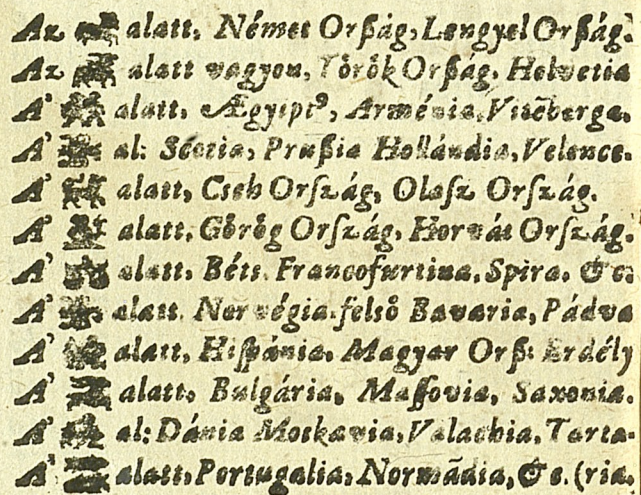 Az alatt, Német Orſzág, Lengyel Orſzág.
Az alatt vagyon, Török Orſzág. Helvetia
A' alatt, Ægyiptꝰ, Arménia, Vitēberga,
A' al: Scotia, Pruſzia Hollándia, Velence.
A' alatt, Cseh Orſzág, Olaſz Orſzág.
A' alatt, Görög Orſzág, Horvát Orſzág.
A' alatt, Béts. Francofurtina, Spira, &c.
A' alatt. Norvégia. felsö Bavaria, Pádva
A' alatt, Hiſpánia, Magyar Orſz: Erdély
A' alatt, Bulgária, Maſſovia, Saxonia.
A' al: Dánia Moskavia, Valachia, Tarta-
A' alatt, Portugalia, Normādia, &c. (ria.